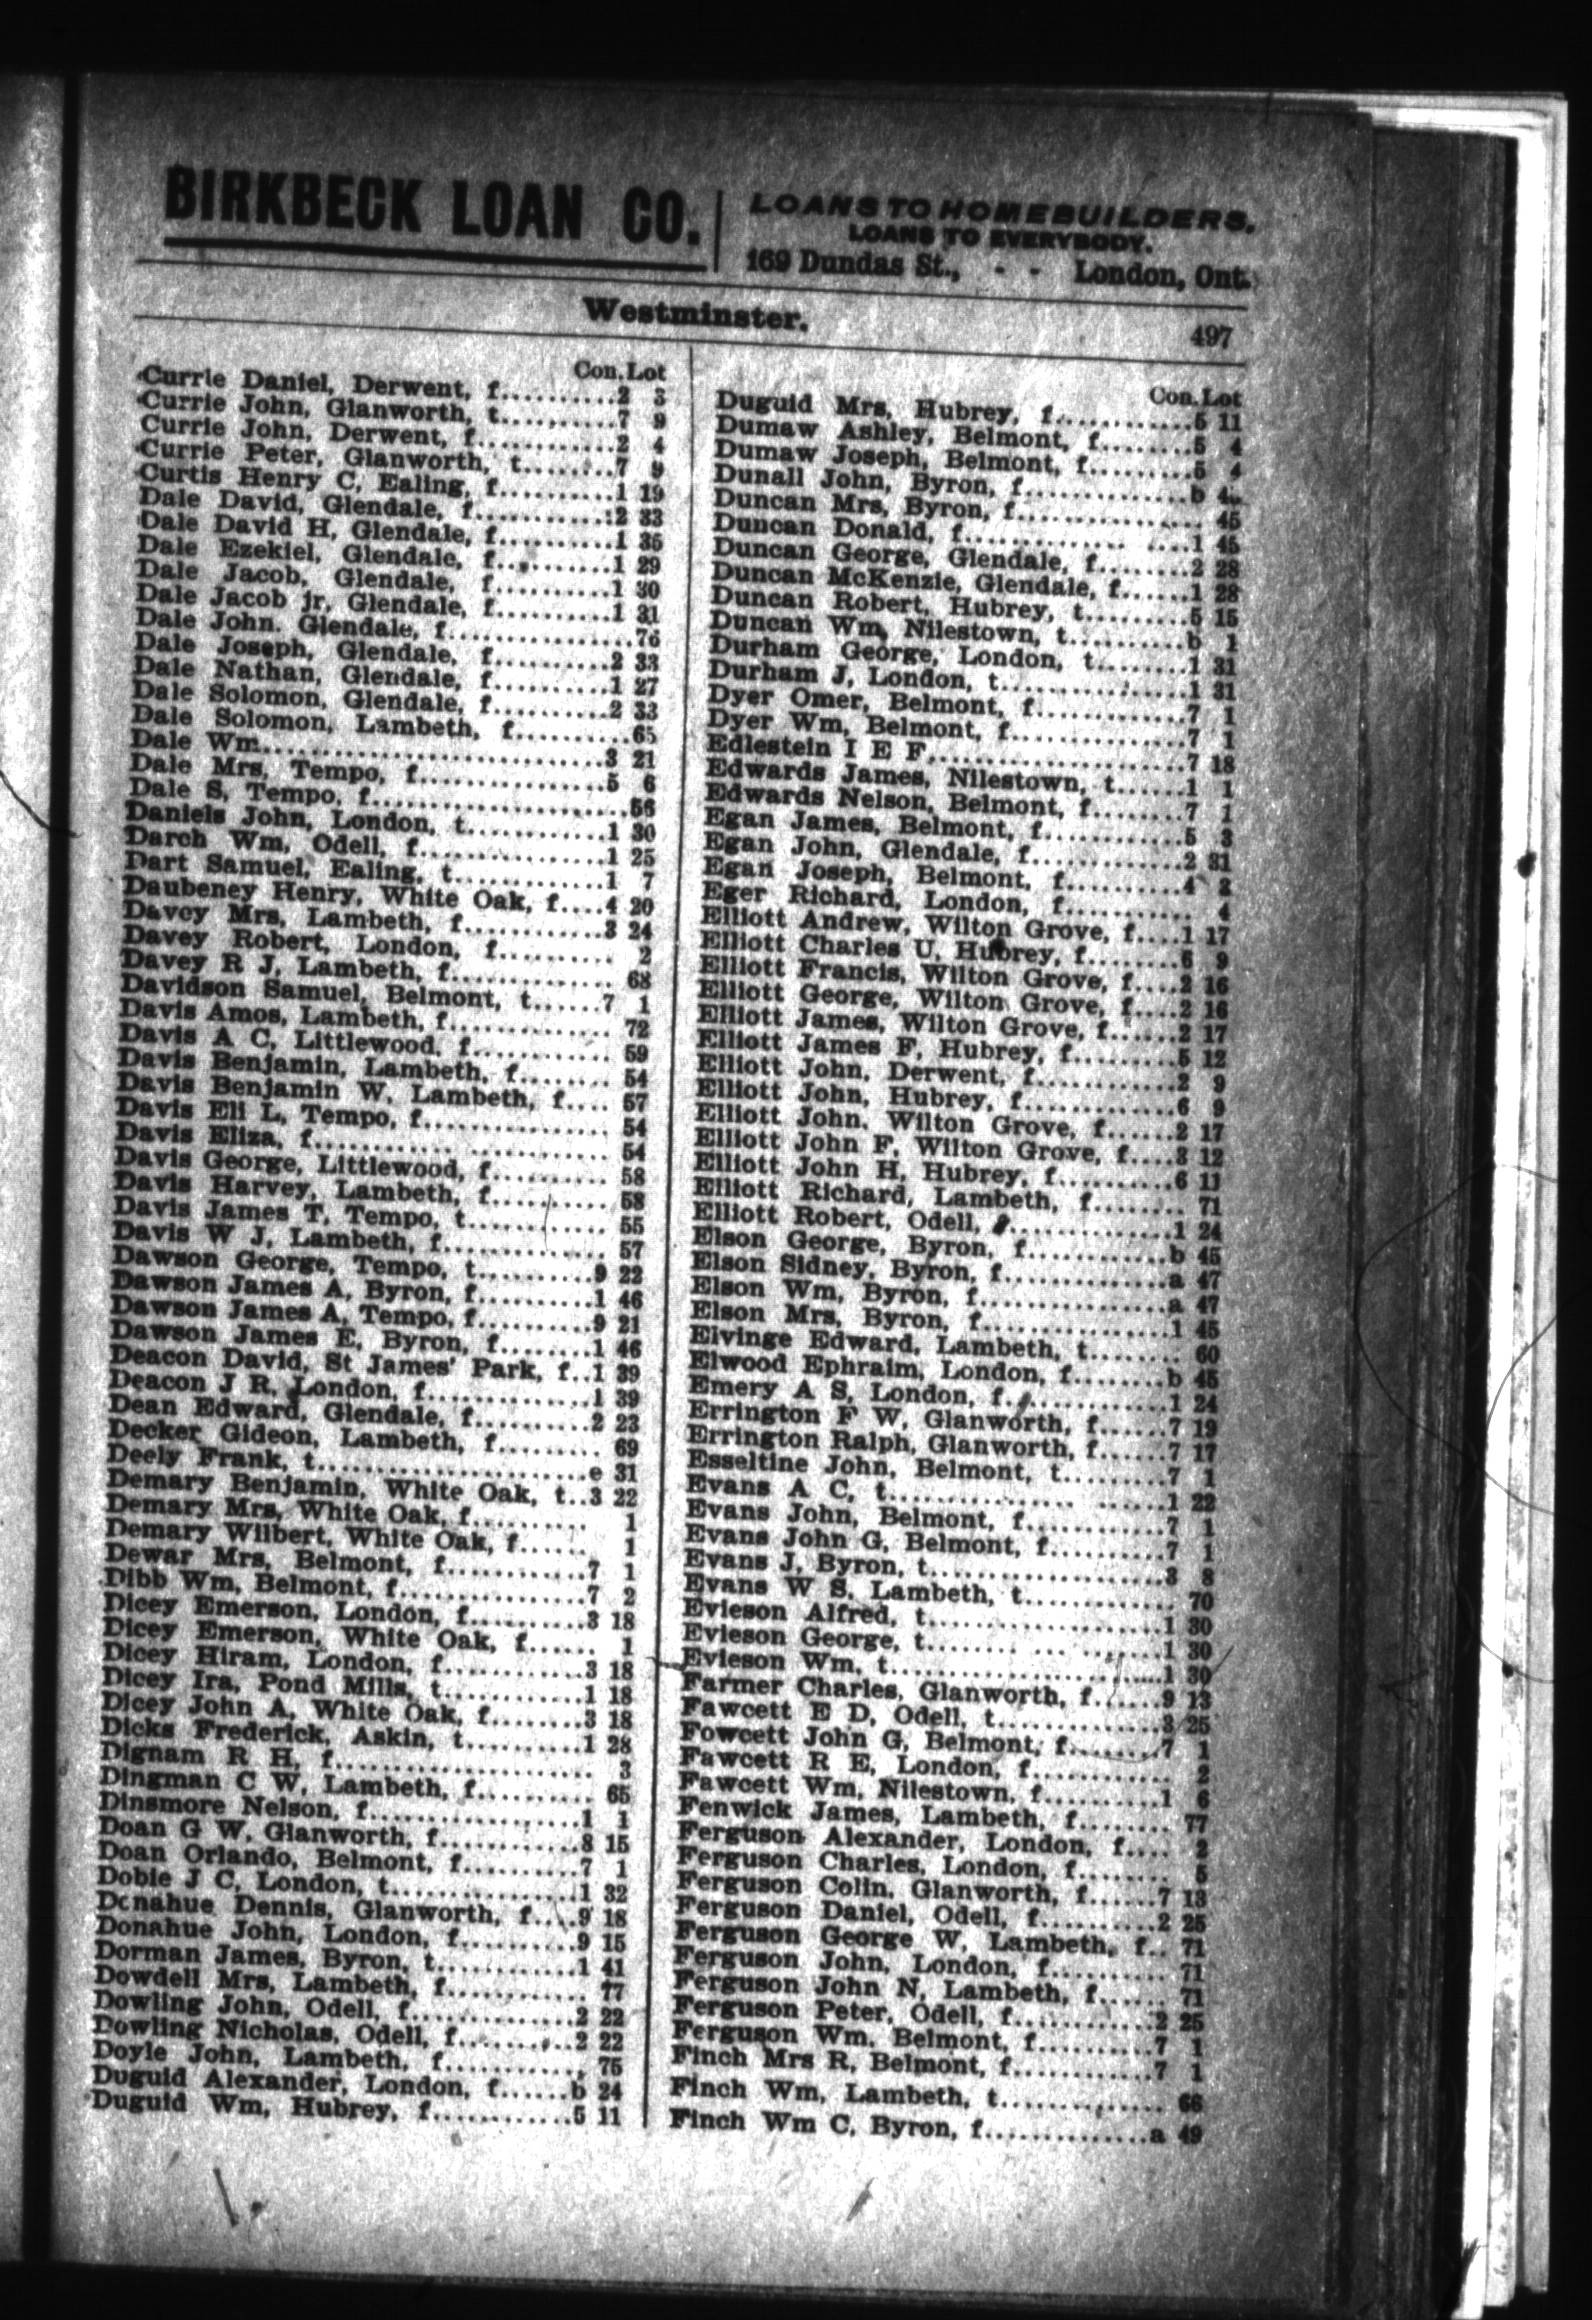 BIRKBECK LOAN CO.
LOANS TO HOMEBUILDERS.
LOANS TO EVERYBODY.
169 Dundas St., - - London, Ont.
Westminster. 497
Con. Lot
Currie Daniel, Derwent, f..........2 3
Currie John, Glanworth, t..........7 9
Currie John, Derwent, f............2 4
Currie Peter, Glanworth, t........7 9
Curtis Henry C, Ealing, f..........1 19
Dale David, Glendale, f............2 33
Dale David H, Glendale, f..........1 35
Dale Ezekiel, Glendale, f..........1 29
Dale Jacob, Glendale, f..........1 30
Dale Jacob jr, Glendale, f..........1 31
Dale John. Glendale, f................76
Dale Joseph, Glendale, f..........2 33
Dale Nathan, Glendale, f..........1 27
Dale Solomon, Glendale, f..........2 33
Dale Solomon, Lambeth, f..........65
Dale Wm................................3 21
Dale Mrs, Tempo, f................5 6
Dale S, Tempo, f......................56
Daniels John, London, t............1 30
Darch Wm, Odell, f................1 25
Dart Samuel, Ealing, t............1 7
Daubeney Henry, White Oak, f....4 20
Davey Mrs, Lambeth, f............3 24
Davey Robert, London, f.......... 2
Davey R J, Lambeth, f.............. 68
Davidson Samuel, Belmont, t......7 1
Davis Amos, Lambeth, f............ 72
Davis A C, Littlewood, f............ 59
Davis Benjamin, Lambeth, f........ 54
Davis Benjamin W, Lambeth, f.... 57
Davis Eli L, Tempo, f................ 54
Davis Eliza, f.......................... 54
Davis George, Littlewood, f........ 58
Davis Harvey, Lambeth, f.......... 58
Davis James T, Tempo, t............ 55
Davis W J, Lambeth, f.............. 57
Dawson George, Tempo, t..........9 22
Dawson James A, Byron, f..........1 46
Dawson James A, Tempo, f..........9 21
Dawson James E, Byron, f........1 46
Deacon David, St James' Park, f..1 39
Deacon J R, London, f..............1 39
Dean Edward, Glendale, f..........2 23
Decker Gideon, Lambeth, f......... 69
Deely Frank, t........................e 31
Demary Benjamin, White Oak, t..3 22
Demary Mrs, White Oak, f.......... 1
Demary Wilbert, White Oak, f...... 1
Dewar Mrs, Belmont, f............7 1
Dibb Wm, Belmont, f................7 2
Dicey Emerson, London, f..........3 18
Dicey Emerson, White Oak, f...... 1
Dicey Hiram, London, f............3 18
Dicey Ira, Pond Mills, t............1 18
Dicey John A, White Oak, f........3 18
Dicks Frederick, Askin, t..........1 28
Dignam R H, f........................ 3
Dingman C W, Lambeth, f.......... 65
Dinsmore Nelson, f..................1 1
Doan G W, Glanworth, f............8 15
Doan Orlando, Belmont, f..........7 1
Dobie J C, London, t................1 32
Donahue Dennis, Glanworth, f....9 18
Donahue John, London, f..........9 15
Dorman James, Byron, t............1 41
Dowdell Mrs, Lambeth, f............ 77
Dowling John, Odell, f..............2 22
Dowling Nicholas, Odell, f..........2 22
Doyle John, Lambeth, f............ 75
Duguid Alexander, London, f......b 24
Duguid Wm, Hubrey, f............5 11
Con. Lot
Duguid Mrs, Hubrey, f............5 11
Dumaw Ashley, Belmont, f........5 4
Dumaw Joseph, Belmont, f........5 4
Dunall John, Byron, f..............b
Duncan Mrs, Byron, f................ 45
Duncan Donald, f....................1 45
Duncan George, Glendale, f........2 28
Duncan McKenzie, Glendale, f......1 28
Duncan Robert, Hubrey, t..........5 15
Duncan Wm, Nilestown, t..........b 1
Durham George, London, t........1 31
Durham J, London, t................1 31
Dyer Omer, Belmont, f..............7 1
Dyer Wm, Belmont, f................7 1
Edlestein I E F,......................7 18
Edwards James, Nilestown, t......1 1
Edwards Nelson, Belmont, f........7 1
Egan James, Belmont, f............5 3
Egan John, Glendale, f..............2 31
Egan Joseph, Belmont, f..........4 2
Eger Richard, London, f............ 4
Elliott Andrew, Wilton Grove, f....1 17
Elliott Charles U, Hubrey, f........6 9
Elliott Francis, Wilton Grove, f....2 16
Elliott George, Wilton Grove, f....2 16
Elliott James, Wilton Grove, f......2 17
Elliott James F, Hubrey, f..........5 12
Elliott John, Derwent, f............2 9
Elliott John, Hubrey, f..............6 9
Elliott John, Wilton Grove, f......2 17
Elliott John F, Wilton Grove, f....3 12
Elliott John H, Hubrey, f..........6 11
Elliott Richard, Lambeth, f........ 71
Elliott Robert, Odell, f..............1 24
Elson George, Byron, f............b 45
Elson Sidney, Byron, f..............a 47
Elson Wm, Byron, f................a 47
Elson Mrs, Byron, f................1 45
Elvinge Edward, Lambeth, t........ 60
Elwood Ephraim, London, f........b 45
Emery A S, London, f..............1 24
Errington F W, Glanworth, f......7 19
Errington Ralph, Glanworth, f......7 17
Esseltine John, Belmont, t..........7 1
Evans A C, t..........................1 22
Evans John, Belmont, f............7 1
Evans John G, Belmont, f..........7 1
Evans J, Byron, t....................3 8
Evans W S, Lambeth, t.............. 70
Evieson Alfred, t....................1 30
Evieson George, t....................1 30
Evieson Wm, t........................1 30
Farmer Charles, Glanworth, f......9 13
Fawcett E D, Odell, t................3 25
Fowcett John G, Belmont, f........7 1
Fawcett R E, London, f............ 2
Fawcett Wm, Nilestown, f..........1 6
Fenwick James, Lambeth, f........ 77
Ferguson Alexander, London, f.... 2
Ferguson Charles, London, f........ 5
Ferguson Colin, Glanworth, f......7 13
Ferguson Daniel, Odell, f..........2 25
Ferguson George W, Lambeth, f.. 71
Ferguson John, London, f.......... 71
Ferguson John N, Lambeth, f...... 71
Ferguson Peter, Odell, f............2 25
Ferguson Wm, Belmont, f..........7 1
Finch Mrs R, Belmont, f............7 1
Finch Wm, Lambeth, t.............. 66
Finch Wm C, Byron, f..............a 49